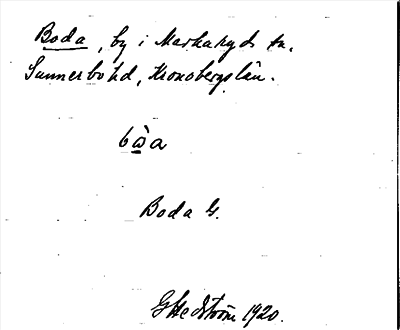 Boda, by i Markaryds sn,
Sunnerbo hd, Kronobergs län.
Boda G.
G Hedström 1920.